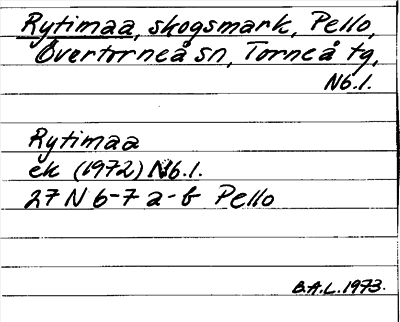 Rytimaa, skogsmark, Pello,
Övertorneå sn, Torneå tg,
Nb.l.
Rytimaa
ek (1972) Nb.l.
27 N 6-7 a-b Pello
B.A.L. 1973.